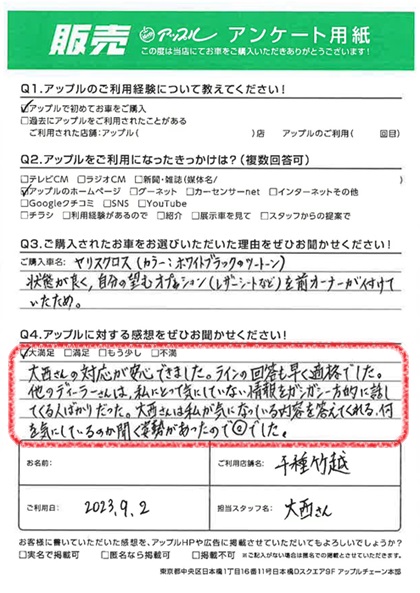 販売 アップル アンケート用紙
この度は当店にてお車をご購入いただきありがとうございます!
Q1.アップルのご利用経験について教えてください!
☑アップルで初めてお車をご購入
□過去にアップルをご利用されたことがある
ご利用された店舗:アップル( )店 アップルのご利用( 回目)
Q2.アップルをご利用になったきっかけは?(複数回答可)
□テレビCM □ラジオCM □新聞・雑誌(媒体名/ )
☑アップルのホームページ □グーネット □カーセンサーnet □インターネットその他
□Googleクチコミ □SNS □YouTube
□チラシ □利用経験があるので □紹介 □展示車を見て □スタッフからの提案で
Q3.ご購入されたお車をお選びいただいた理由をぜひお聞かせください!
ご購入車名: ヤリスクロス(カラー:ホワイトブラックのツートーン)
状態が良く,自分の望むオプション(レザーシートなど)を前オーナーが付けて
いたため。
Q4.アップルに対する感想をぜひお聞かせください!
☑大満足 □満足 □もう少し □不満
大西さんの対応が安心できました。ラインの回答も早く適格でした。
他のディーラーさんは、私にとって気にしていない情報をガシガシ一方的に話し
てくる人ばかりだった。大西さんは私が気になっている内容を答えてくれる、何
を気にしているのか聞く姿勢があったので◎でした。
お名前:
ご利用店舗名: 千種竹越
ご利用日: 2023.9.2
担当スタッフ名: 大西さん
お客様に書いていただいた感想を、アップルHPや広告に掲載させていただいてもよろしいでしょうか?
□実名で掲載可 □匿名なら掲載可 □掲載不可 ※ご記入がない場合は匿名での掲載とさせていただきます。
東京都中央区日本橋1丁目16番11号日本橋Dスクエア5F アップルチェーン本部